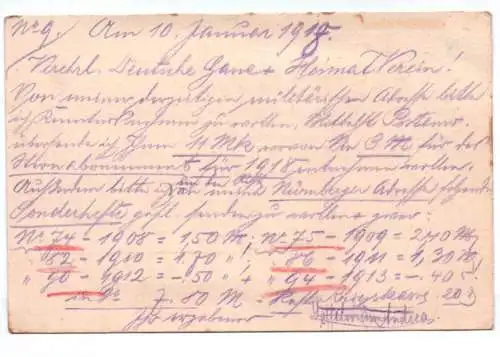 Nr 9. Am 10. Januar 1918.
Verehrl. Deutsche Gaue + Heimat Verein!
Von meiner derzeitigen militärischen Adresse bitte
ich Kenntnis nehmen zu wollen,
übersende ich Ihnen 11 Mk wovon Sie 3 M für das
Abonnement für 1918 entnehmen wollen.
Außerdem bitte ich an meine Nürnberger Adresse, folgende
Sonderhefte gefl. senden zu wollen
Nr. 74 - 1908 = 1,50 M, Nr. 75 - 1909 = 2,40 M,
" 82 - 1910 = 1.70 " , " 86 - 1911 = 1,30 M,
" 90 - 1912 = -.50 " + " 94 - 1913 = -.40
7.80 M -
Ihr ergebener